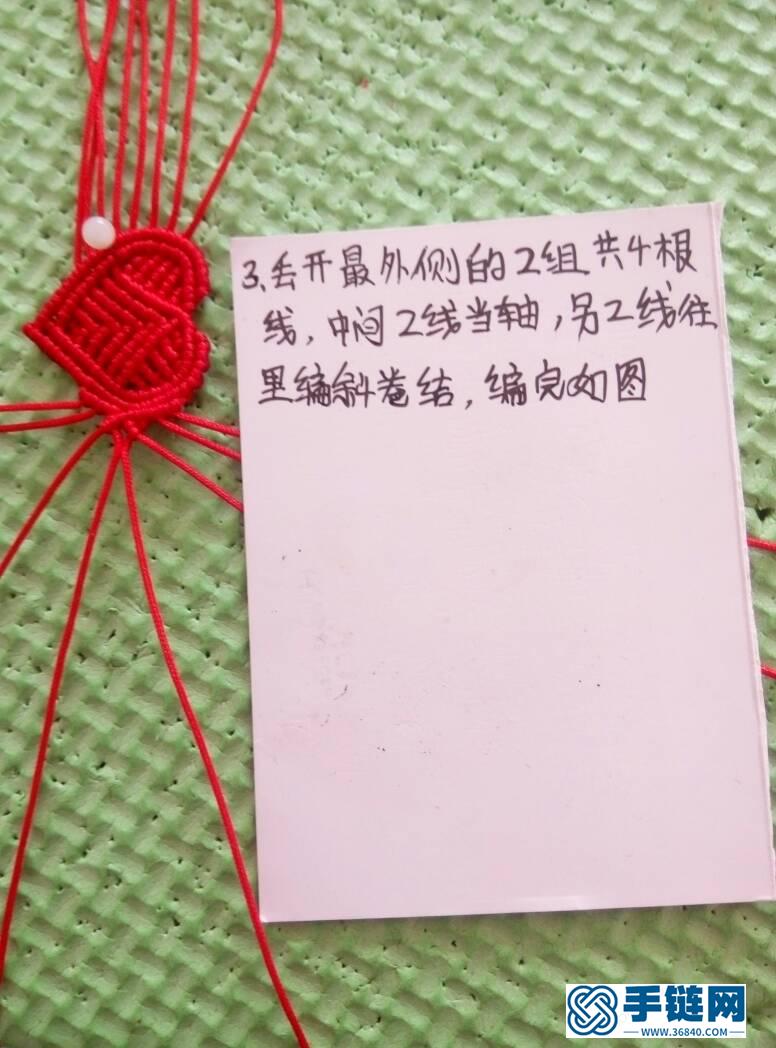 3、丢开最外侧的2组共4根
线，中间2线当轴，另2线往
里编斜卷结，编完如图
手链网
WWW.36840.COM